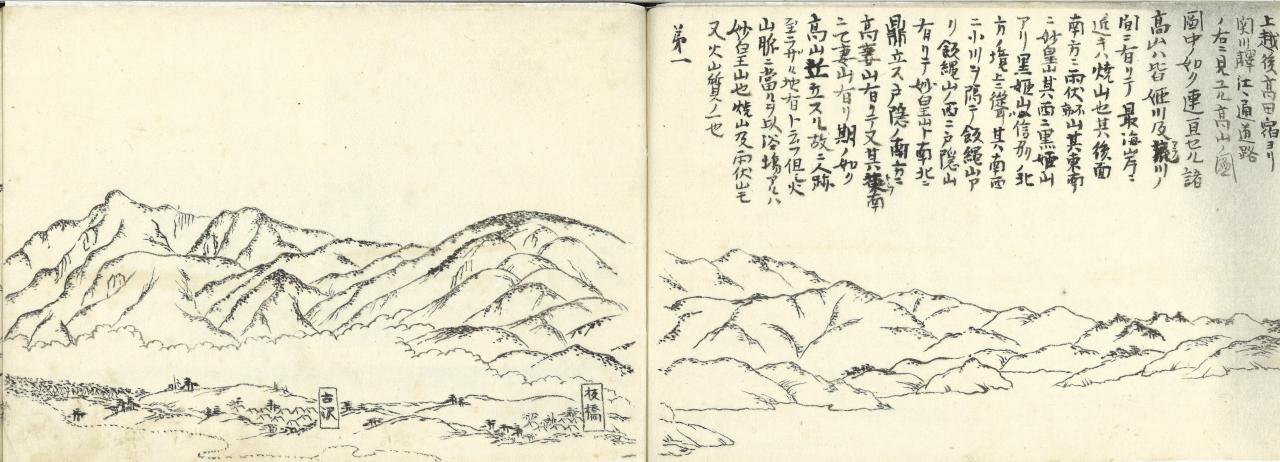 上越後高田宿ヨリ
関川驛江ノ通道路
ノ右ニ見エル高山ノ圖
圖中ノ如ク連亘セル諸
高山ハ皆姫川及 川ノ
間ニ有リテ最海岸ニ
近キハ焼山也其後面
南方ニ雨伏 山其東南
ニ妙皇山其西ニ黒姫山
アリ黒姫山ハ信 ノ北
方ノ境上ニ聳其南西
ニ小川ヲ隔テ飯縄山ア
リ飯縄山ノ西ニ戸隠山
有リテ妙皇山ト南北ニ
鼎立ス戸隠ノ南方ニ
高妻山有リテ又其東南
ニ乙妻山有リ期ノ如ク
高山並立スル故ニ人跡
至ラザル地有ト云フ但シ火
山脈ニ當ルヲ以浴場アルハ
妙皇山也焼山及雨伏山モ
又火山質ノ一也
第一
古沢
板橋